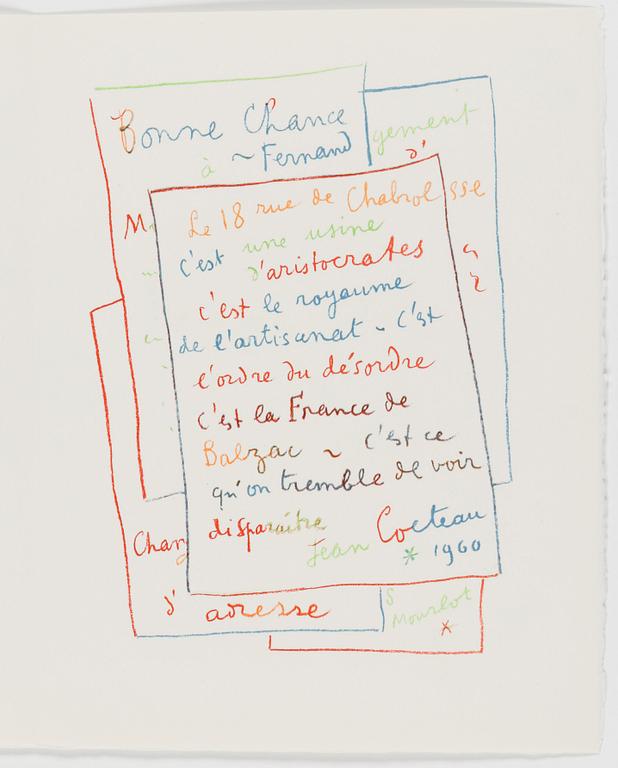 Bonne Chance
à ~ Fernand
gement
d'
M
Le 18 rue de Chabrol
sse
c'est une usine
d'aristocrates
c'est le royaume
de l'artisanat ~ C'est
l'ordre du désordre
C'est la France de
Balzac ~ c'est ce
qu'on tremble de voir
disparaître
Jean Cocteau
* 1960
Chan
d' adresse
S
Mourlot
*